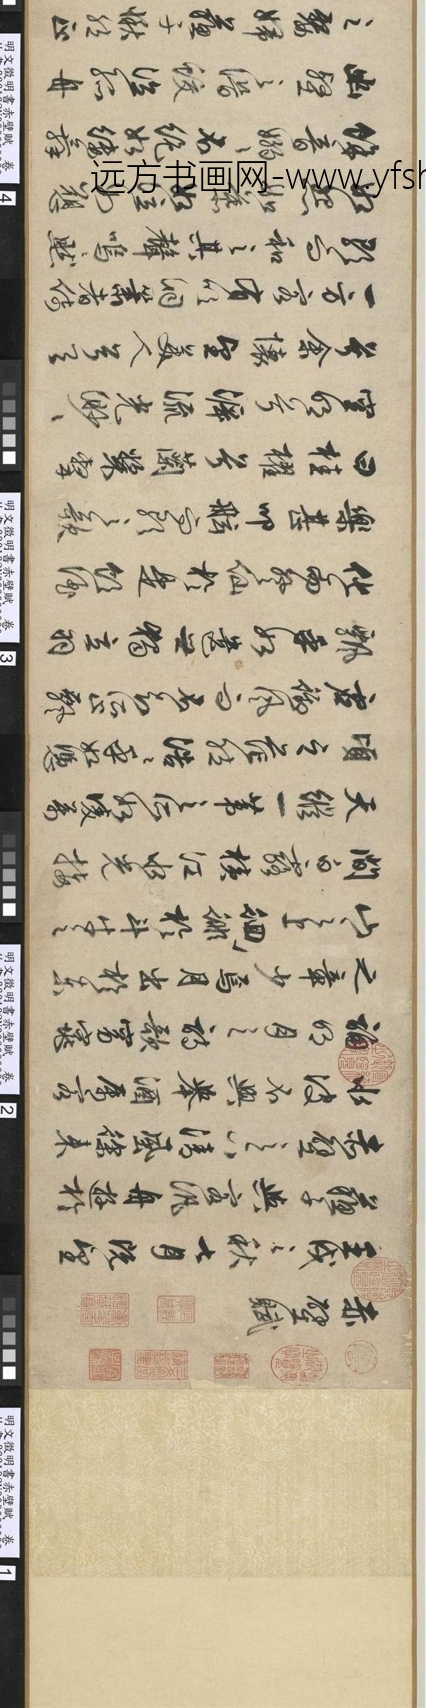 赤壁賦
壬戌之秋七月既望
蘇子與客泛舟遊於
赤壁之下清風徐來
水波不興舉酒屬客
誦明月之詩歌窈窕
之章少焉月出於東
山之上徘徊於斗牛之
間白露橫江水光接
天縱一葦之所如凌萬
頃之茫然浩浩乎如憑
虛御風而不知其所止飄
飄乎如遺世獨立羽
化而登仙於是飲酒
樂甚扣舷而歌之歌
曰桂櫂兮蘭槳擊
空明兮泝流光渺渺
兮余懷望美人兮天
一方客有吹洞簫者倚
歌而和之其聲嗚嗚然
如怨如慕如泣如訴
餘音嫋嫋不絕如縷舞
幽壑之潛蛟泣孤舟
之嫠婦蘇子愀然正
远方书画网-www.yfsh
明文徵明書赤壁賦 卷
1
明文徵明書赤壁賦 卷
2
明文徵明書赤壁賦 卷
3
明文徵明書赤壁賦 卷
4